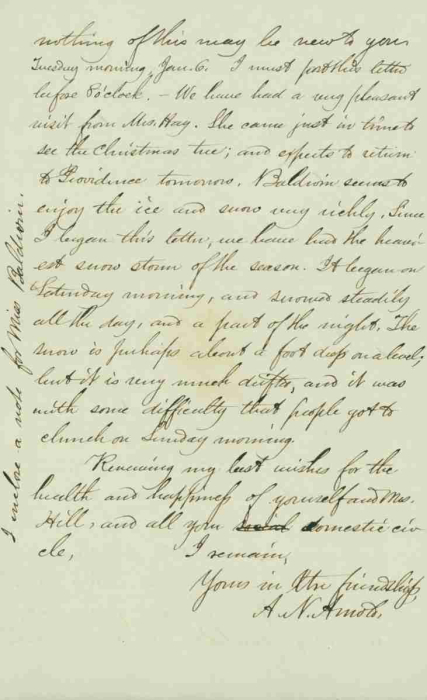 nothing of this may be new to you.
Tuesday morning, Jan. 6. I must post this letter
before 8 o'clock. – We have had a very pleasant
visit from Mrs. Hay. She came just in time to
see the Christmas tree; and expects to return
to Providence tomorrow. Baldwin seems to
enjoy the ice and snow very richly. Since
I began this letter, we have had the heavi
est snow storm of the season. It began on
Saturday morning, and snowed steadily
all the day, and a part of the night. The
snow is perhaps about a foot deep on a level;
but it is very much drifted, and it was
with some difficulty that people got to
church on Sunday morning.
Renewing my best wishes for the
health and happiness of yourself and Mrs.
Hill, and all your social domestic cir
cle,
I remain,
Yours in true friendship,
A. N. Arnold.
I inclose a note for Miss Baldwin.